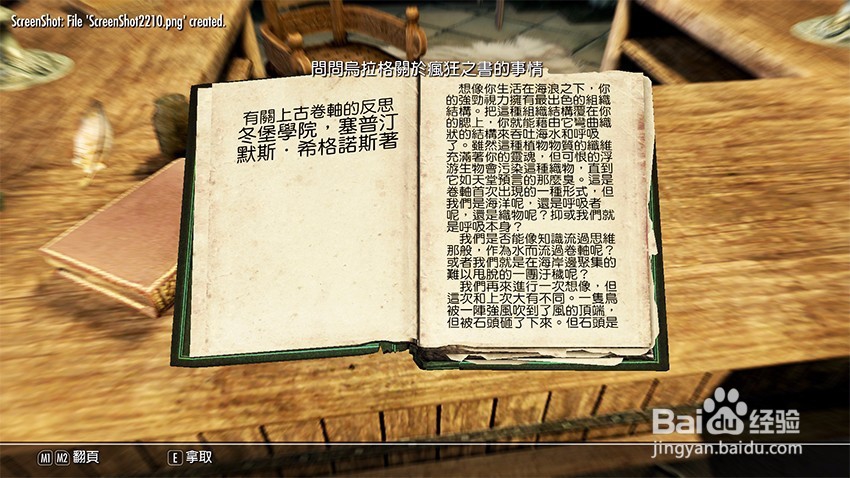 ScreenShot: File 'ScreenShot2210.png' created.
問問烏拉格關於瘋狂之書的事情
有關上古卷軸的反思
冬堡學院，塞普汀
默斯·希格諾斯著
想像你生活在海浪之下，你
的強勁視力擁有最出色的組織
結構。把這種組織結構覆在你
的鰓上，你就能藉由它彎曲織
狀的結構來吞吐海水和呼吸
了。雖然這種植物物質的纖維
充滿著你的靈魂，但可恨的浮
游生物會污染這種織物，直到
它如天堂預言的那麼臭。這是
卷軸首次出現的一種形式，但
我們是海洋呢，還是呼吸者
呢，還是織物呢？抑或我們就
是呼吸本身？
我們是否能像知識流過思維
那般，作為水而流過卷軸呢？
或者我們就是在海岸邊聚集的
難以甩脫的一團汙穢呢？
我們再來進行一次想像，但
這次和上次大有不同。一隻鳥
被一陣強風吹到了風的頂端，
但被石頭砸了下來。但石頭是
M1 M2 翻頁
E 拿取
Baidu经验
jingyan.baidu.com